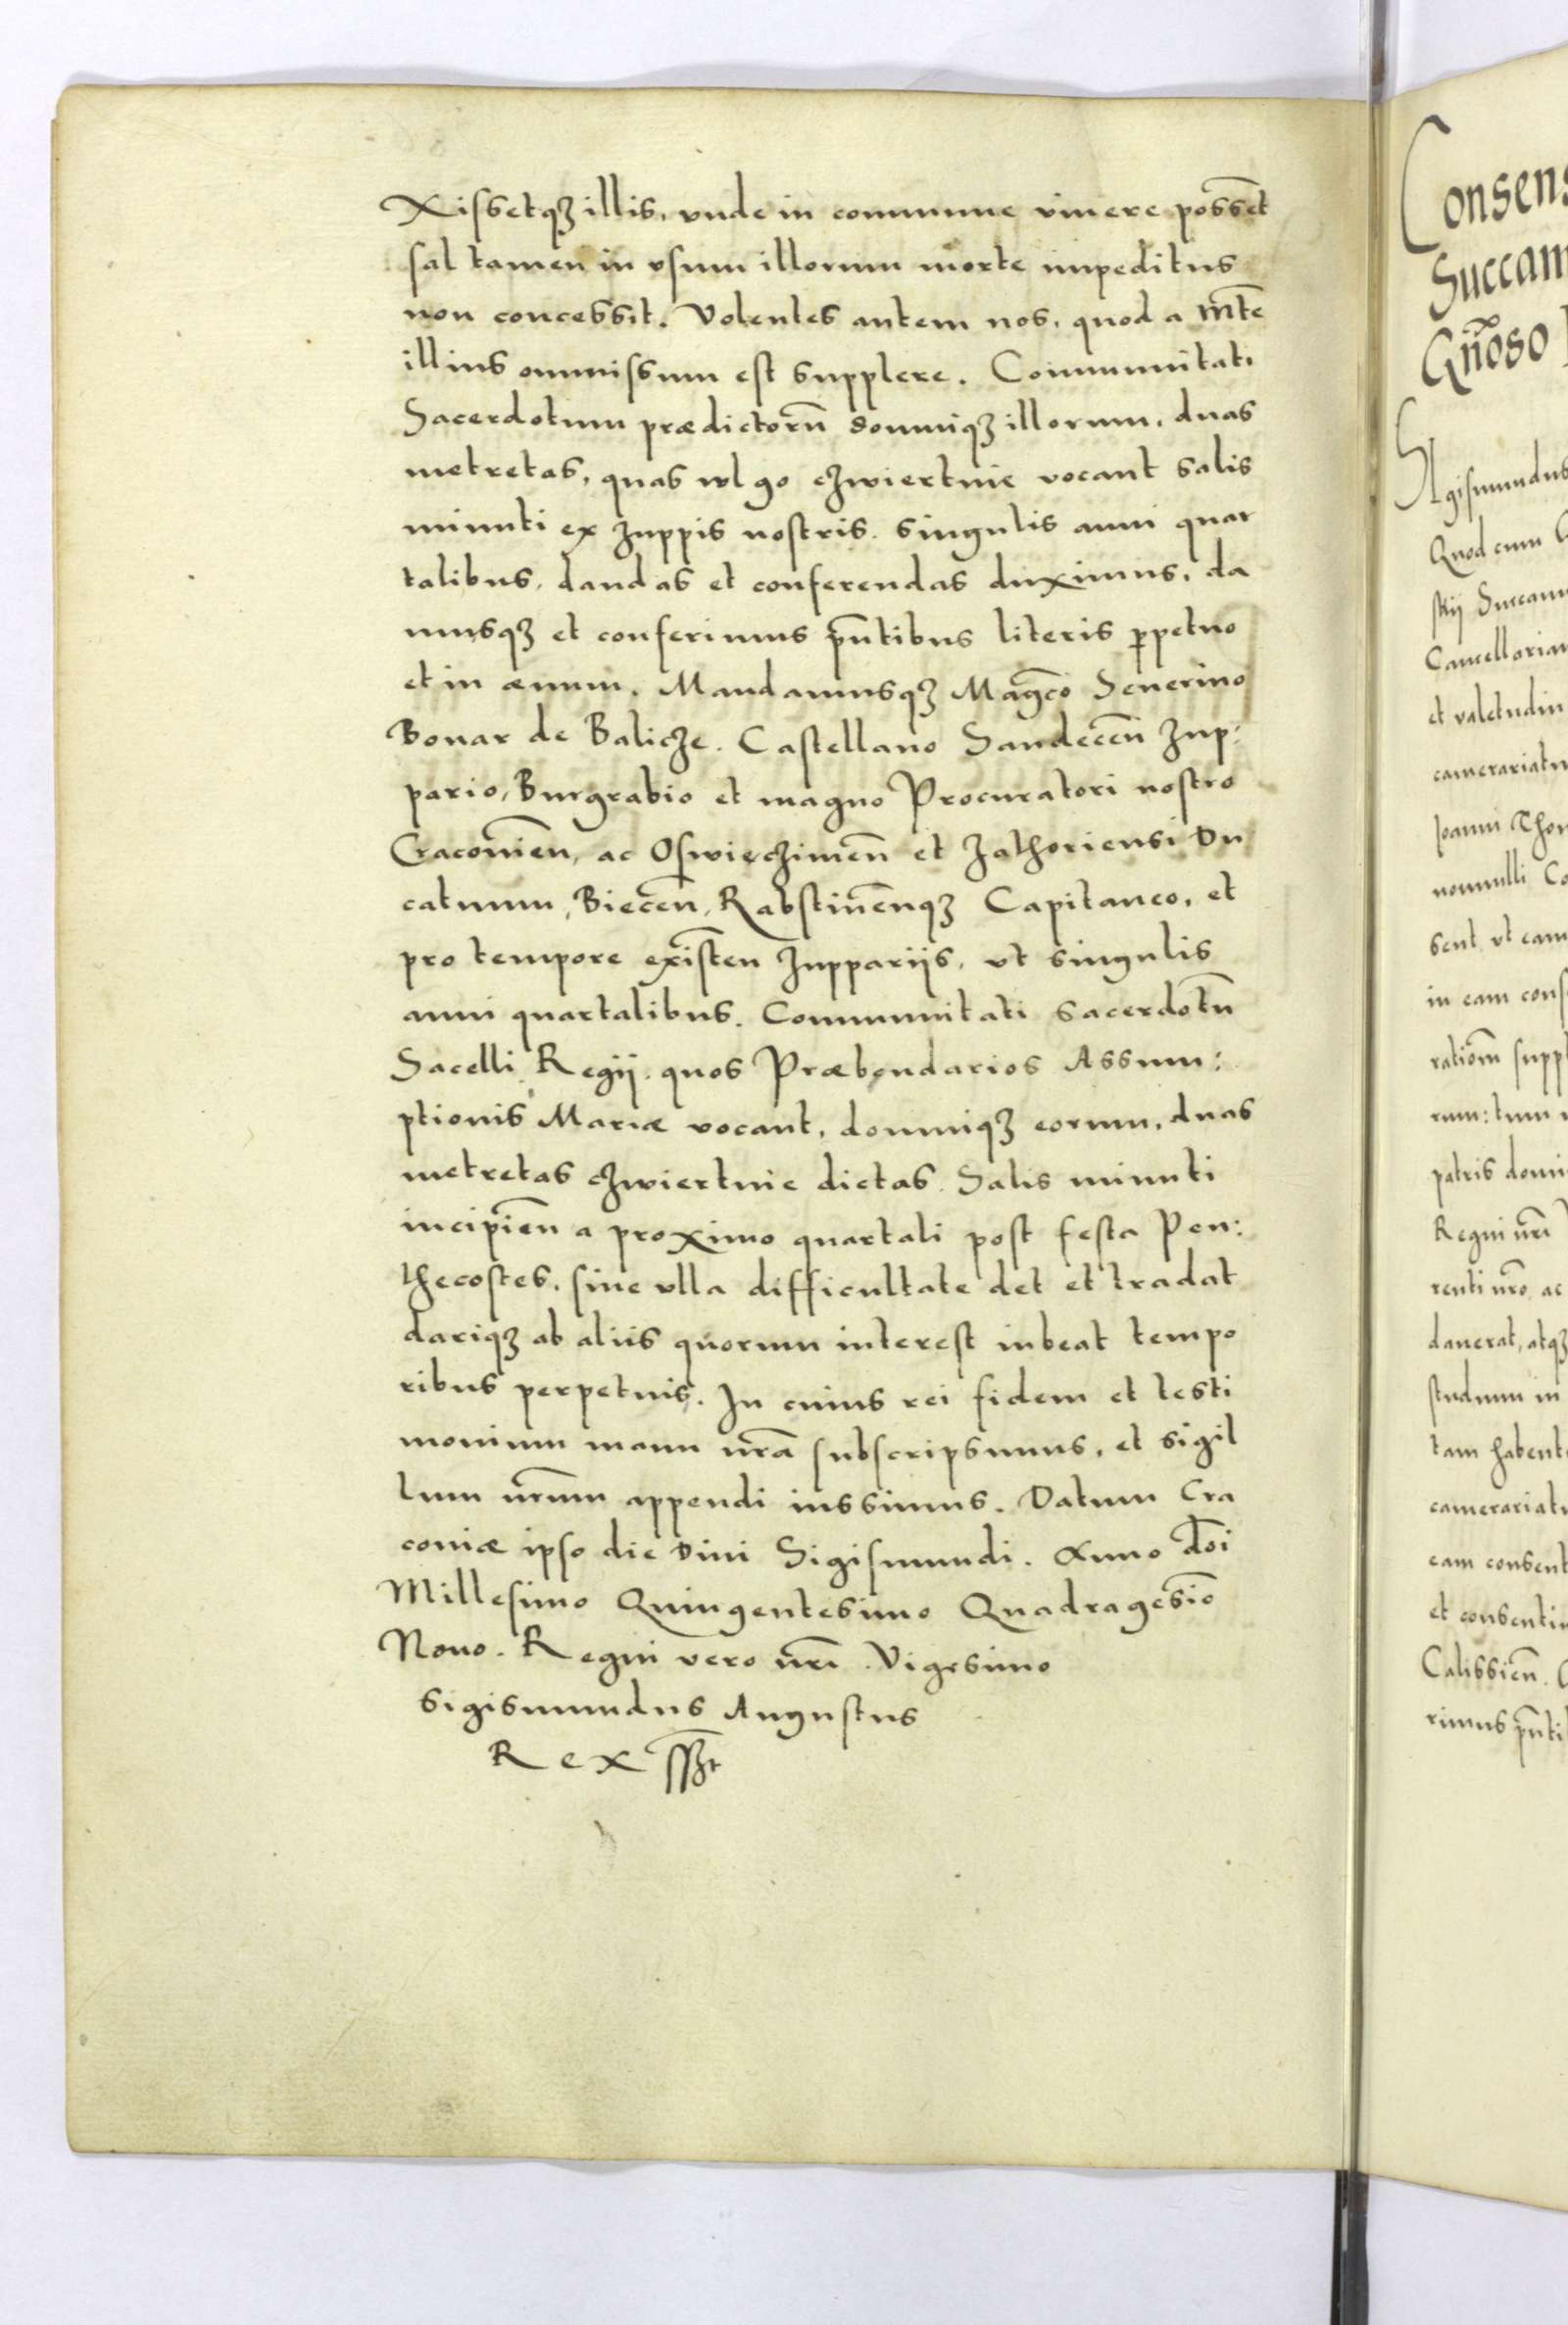 xissetqȝ illis, vnde in commune viuere possēt
sal tamen in vsum illorum morte impeditus
non concessit. Volentes autem nos, quod a Mte
illius ommissum est supplere. Communitati
Sacerdotum prædictorū domuiqȝ illorum, duas
metretas, quas wlgo czwiertnie vocant salis
minuti ex zuppis nostris singulis anni quar
talibus, dandas et conferendas duximus, da
musqȝ et conferimus pñtibus literis ꝑpetuo
et in æuum. Mandamusqȝ Magco Seuerino
Bonar de Balicze. Castellano Sandecēn Zup:
pario, Burgrabio et magno Procuratori nostro
Cracouien̄, ac Oswieczimen̄ et Zathoriensi Du
catuum, Biecen̄, Rabstinēnqȝ Capitaneo, et
pro tempore existen̄ Zuppariis, vt singulis
anni quartalibus. Communitati sacerdotū
Sacelli Regij. quos Præbendarios Assum:
ptionis Mariæ vocant, domuiqȝ eorum, duas
metretas czwiertnie dictas. Salis minuti
incipien̄ a proximo quartali post festa Pen:
thecostes, sine vlla difficultate det et tradat
dariqȝ ab aliis quorum interest iubeat tempo
ribus perpetuis. In cuius rei fidem et testi
monium manu nr̄a subscripsimus, et sigil
lum nr̄um appendi iussimus. Datum Cra
couiæ ipso die Diui Sigismundi. Anno Dōi
Millesimo Quingentesimo Quadragesīo
Nono. Regni vero nr̄i. Vigesimo
Sigismundus Augustus
Rex sszt
Consens
Succam
Gñoso
Sigismundus
Quod cum
skij Succam
Cancellarian
et valetudin
camerariatu
Joanni Thor
nonnulli Co
sent vt eam
in eam cons
rationē suppl
rum: tum
patris domi
Regni nr̄i
renti nr̄o ac
dauerat, atqȝ
studium in
tam habent
camerariatu
eam consent
et consentim
Calissien̄.
rimus pñti